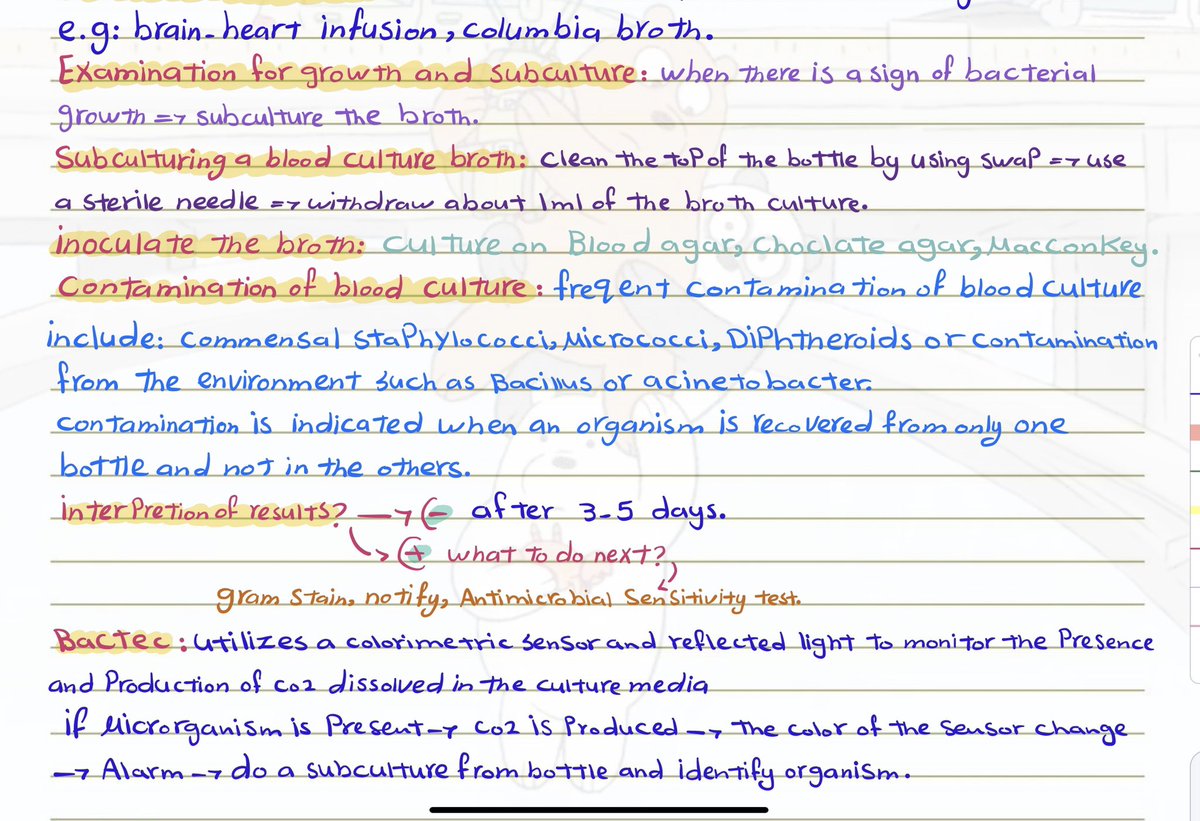 e.g: brain-heart infusion, columbia broth.
Examination for growth and subculture: when there is a sign of bacterial
growth => subculture the broth.
Subculturing a blood culture broth: clean the top of the bottle by using swap => use
a sterile needle => withdraw about 1ml of the broth culture.
inoculate the broth: culture on Blood agar, Choclate agar, MacConkey.
Contamination of blood culture: freqent contamination of blood culture
include: commensal staphylococci, Micrococci, Diphtheroids or contamination
from the environment such as Bacillus or acinetobacter.
contamination is indicated when an organism is recovered from only one
bottle and not in the others.
interpretion of results? → - after 3-5 days.
→ + what to do next?
gram stain, notify, Antimicrobial Sensitivity test.
Bactec: utilizes a colorimetric sensor and reflected light to monitor the Presence
and Production of co2 dissolved in the culture media
if Microrganism is Present → co2 is Produced → The color of the sensor change
→ Alarm → do a subculture from bottle and identify organism.